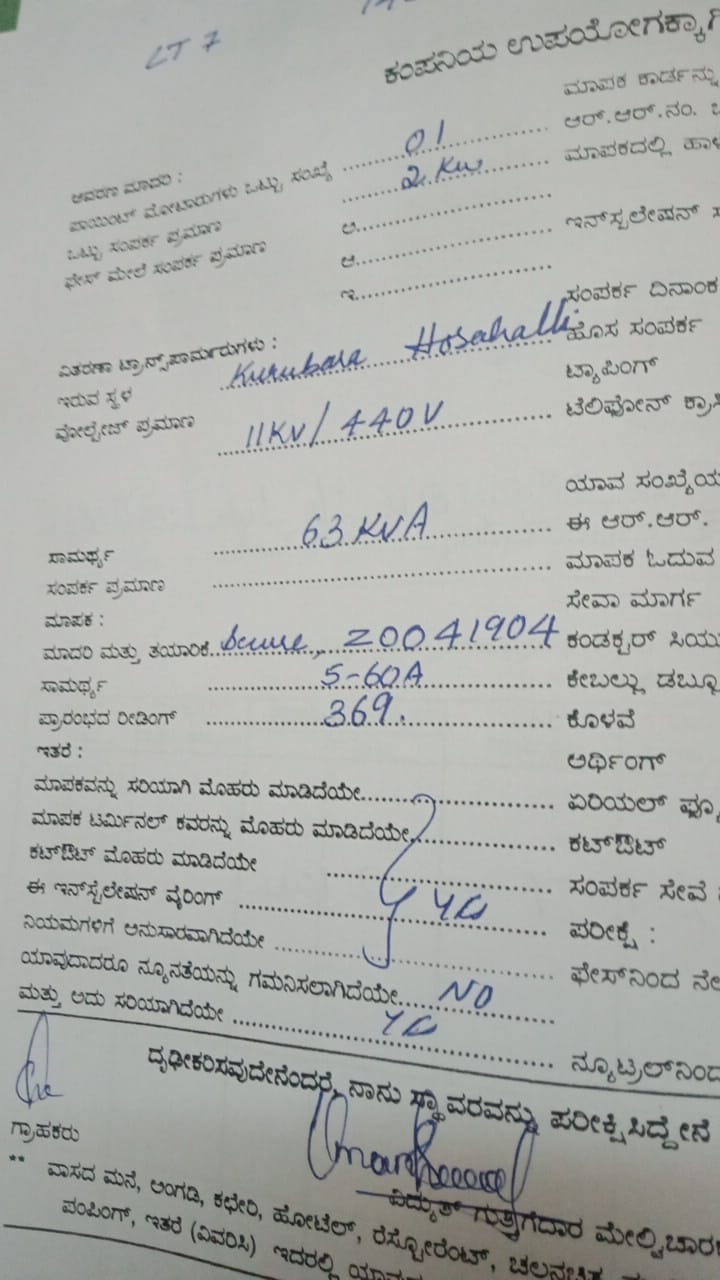 LT 7
ಕಂಪನಿಯ ಉಪಯೋಗಕ್ಕಾಗಿ
ಮಾಪಕ ಕಾರ್ಡನ್ನು
ಆವರಣ ಮಾದರಿ :
ಆರ್.ಆರ್.ನಂ.
ಪಾಯಿಂಟ್ ಮೋಟಾರುಗಳು ಒಟ್ಟು ಸಂಖ್ಯೆ 01
ಮಾಪಕದಲ್ಲಿ
ಒಟ್ಟು ಸಂಪರ್ಕ ಪ್ರಮಾಣ 2 Kw
ಫೇಸ್ ಮೇಲೆ ಸಂಪರ್ಕ ಪ್ರಮಾಣ ಅ
ಆ
ಇನ್‌ಸ್ಟಲೇಷನ್
ಇ
ಸಂಪರ್ಕ ದಿನಾಂಕ
ವಿತರಣಾ ಟ್ರಾನ್ಸ್‌ಪಾರ್ಮರುಗಳು :
ಹೊಸ ಸಂಪರ್ಕ
ಇರುವ ಸ್ಥಳ Kurubara Hosahalli
ಟ್ಯಾಪಿಂಗ್
ವೋಲ್ಟೇಜ್ ಪ್ರಮಾಣ 11KV/440V
ಟೆಲಿಫೋನ್
ಯಾವ ಸಂಖ್ಯೆಯ
ಸಾಮರ್ಥ್ಯ 63 KVA
ಈ ಆರ್.ಆರ್.
ಸಂಪರ್ಕ ಪ್ರಮಾಣ
ಮಾಪಕ ಓದುವ
ಮಾಪಕ :
ಸೇವಾ ಮಾರ್ಗ
ಮಾದರಿ ಮತ್ತು ತಯಾರಿಕೆ Secure, 20041904
ಕಂಡಕ್ಟರ್
ಸಾಮರ್ಥ್ಯ 5-60A
ಕೇಬಲ್ಲು
ಪ್ರಾರಂಭದ ರೀಡಿಂಗ್ 369.
ಕೊಳವೆ
ಇತರೆ :
ಅರ್ಥಿಂಗ್
ಮಾಪಕವನ್ನು ಸರಿಯಾಗಿ ಮೊಹರು ಮಾಡಿದೆಯೇ
ಏರಿಯಲ್
ಮಾಪಕ ಟರ್ಮಿನಲ್ ಕವರನ್ನು ಮೊಹರು ಮಾಡಿದೆಯೇ
ಕಟ್‌ಔಟ್
ಕಟ್‌ಔಟ್ ಮೊಹರು ಮಾಡಿದೆಯೇ
ಸಂಪರ್ಕ ಸೇವೆ
ಈ ಇನ್‌ಸ್ಟಲೇಷನ್ ವೈರಿಂಗ್ Yes
ಪರೀಕ್ಷೆ :
ನಿಯಮಗಳಿಗೆ ಅನುಸಾರವಾಗಿದೆಯೇ
ಫೇಸ್‌ನಿಂದ
ಯಾವುದಾದರೂ ನ್ಯೂನತೆಯನ್ನು ಗಮನಿಸಲಾಗಿದೆಯೇ NO
ಮತ್ತು ಅದು ಸರಿಯಾಗಿದೆಯೇ Yes
ನ್ಯೂಟ್ರಲ್‌ನಿಂದ
ದೃಢೀಕರಿಸವುದೇನೆಂದರೆ, ನಾನು ಸ್ಥಾವರವನ್ನು ಪರೀಕ್ಷಿಸಿದ್ದೇನೆ
ಗ್ರಾಹಕರು
ವಿದ್ಯುತ್ ಗುತ್ತಿಗೆದಾರ
** ವಾಸದ ಮನೆ, ಅಂಗಡಿ, ಕಛೇರಿ, ಹೋಟೆಲ್, ರೆಸ್ಟೋರೆಂಟ್,
ಪಂಪಿಂಗ್, ಇತರೆ (ವಿವರಿಸಿ) ಇದರಲ್ಲಿ